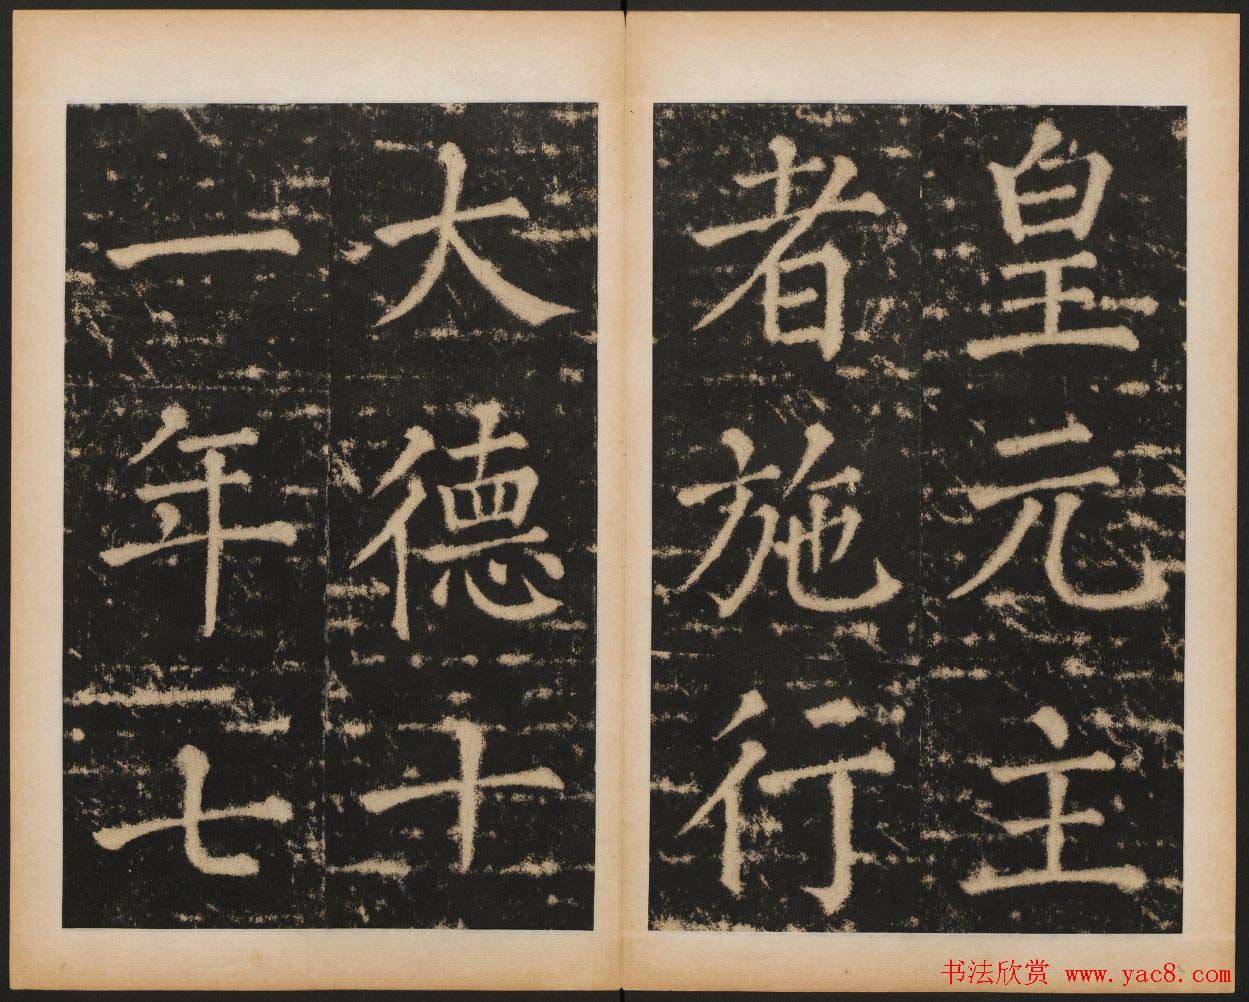 皇元主
者施行
大德十
一年七
书法欣赏 www.yac8.com